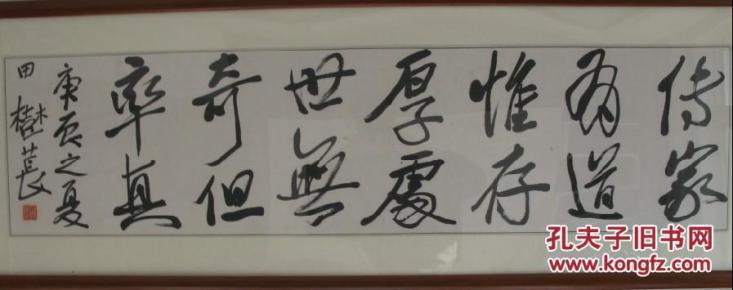 傳家
有道
惟存
厚處
世無
奇但
率真
庚寅之夏
田樹萇
孔夫子旧书网
www.kongfz.com